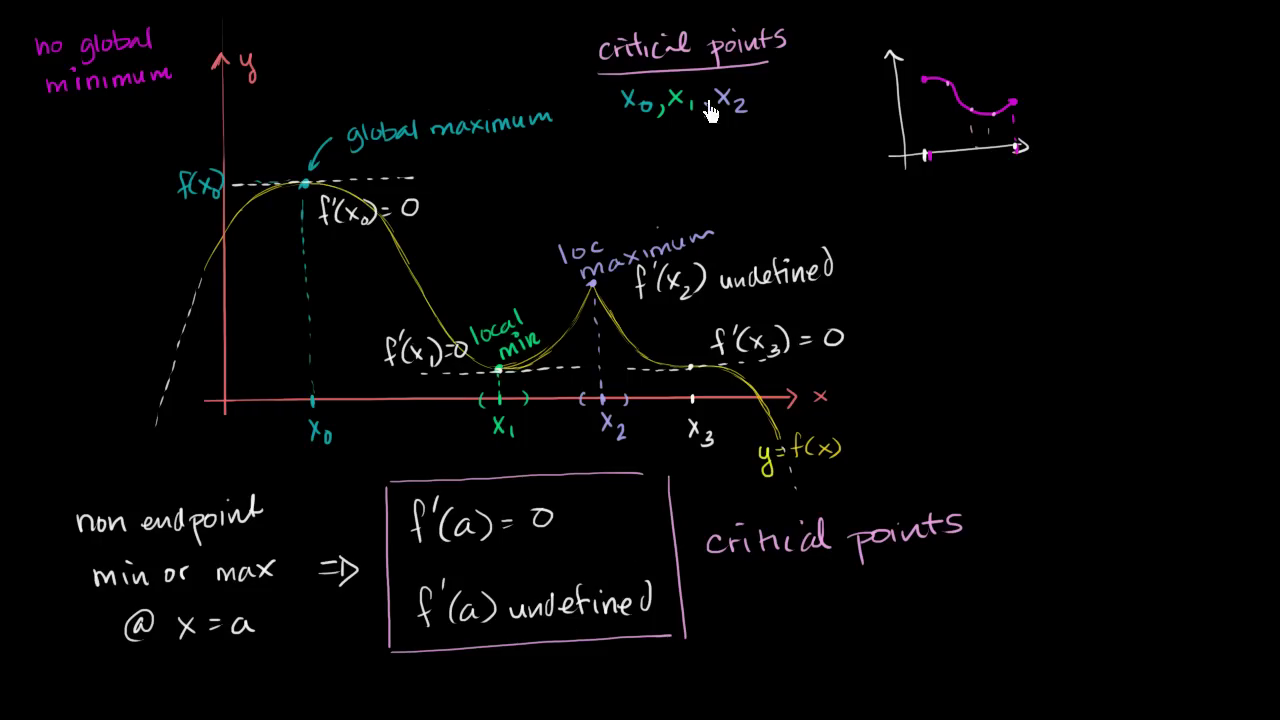 no global
minimum
y
critical points
x₀, x₁, x₂
global maximum
f(x₀)
f'(x₀) = 0
loc
maximum
f'(x₂) undefined
local
min
f'(x₁)=0
f'(x₃) = 0
x
x₀
x₁
x₂
x₃
y=f(x)
non endpoint
min or max
@ x = a
⇒
f'(a) = 0
f'(a) undefined
critical points